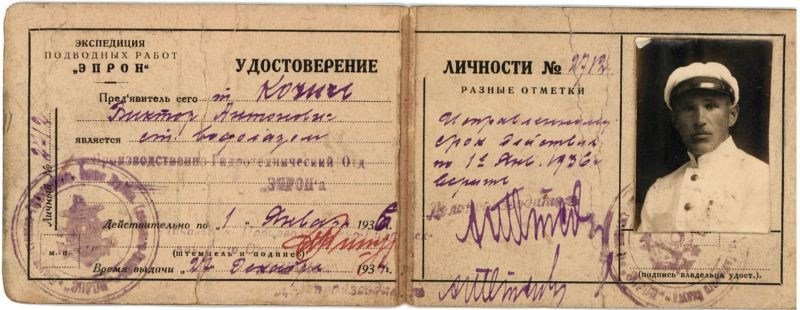 ЭКСПЕДИЦИЯ
ПОДВОДНЫХ РАБОТ
„ЭПРОН“
УДОСТОВЕРЕНИЕ
Пред'явитель сего т. Кочич
Виктор Антонович
является ст. водолазом
Производственно Гидротехнический Отд
"ЭПРОН'а
Действительно по 1 Января 1936
(штемпель и подпись)
м. п.
Время выдачи „27 Декабря 193
Личный № 2712
ЛИЧНОСТИ № 2712
РАЗНЫЕ ОТМЕТКИ
Исправленному
срок действия
по 1е Янв. 1936 г
верить
(подпись владельца удост.)